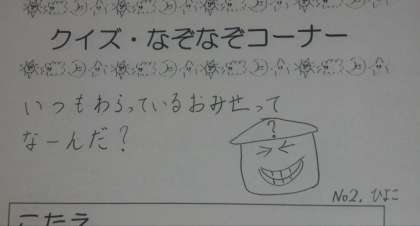 クイズ・なぞなぞコーナー
いつもわらっているおみせって
なーんだ？
?
No2. ひよこ
こたえ